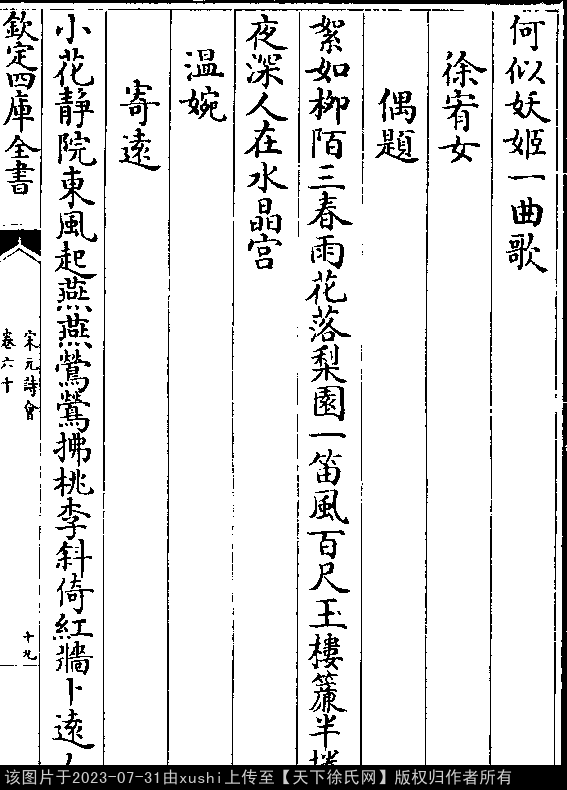 何似妖姬一曲歌
徐宥女
偶題
絮如柳陌三春雨花落梨園一笛風百尺玉樓簾半捲
夜深人在水晶宫
温婉
寄遠
小花靜院東風起燕燕鶯鶯拂桃李斜倚紅牆卜遠人
欽定四庫全書
宋元詩會
卷六十
十九
该图片于2023-07-31由xushi上传至【天下徐氏网】版权归作者所有